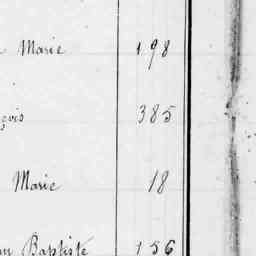 Marie 198
çois 385
Marie 18
Baptiste 156